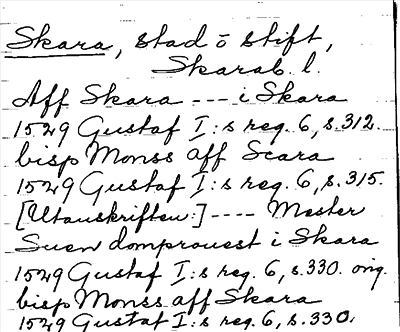 Skara, stad o stift,
Skarab. l.
Aff Skara --- i Skara
1529 Gustaf I:s reg. 6, s. 312.
bisp Monss aff Scara
1529 Gustaf I:s reg. 6, s. 315.
[Utanskriften:] ---- Mester
Suen domprouest i Skara
1529 Gustaf I:s reg. 6, s. 330. orig.
bisp Monss aff Skara
1529 Gustaf I:s reg. 6, s. 330.